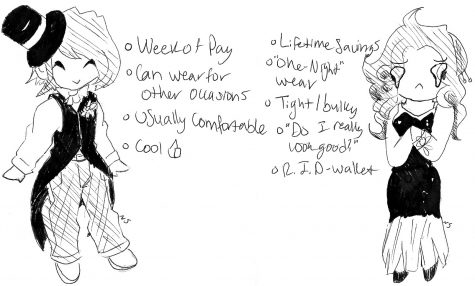 Week of Pay
Can wear for
other occasions
Usually comfortable
Cool
Lifetime savings
"One-Night"
wear
Tight/bulky
"Do I really
look good?"
R.I.P-wallet